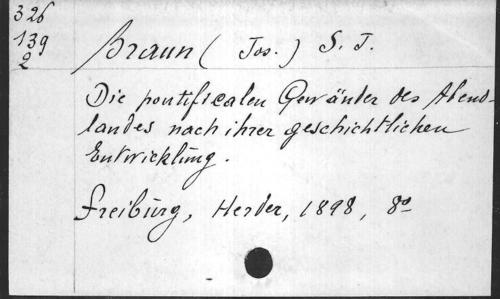 326
139
2
Braun (Jos.) S. J.
Die pontificalen Gewänder des Abend-
landes nach ihrer geschichtlichen
Entwicklung.
Freiburg, Herder, 1898, 8°